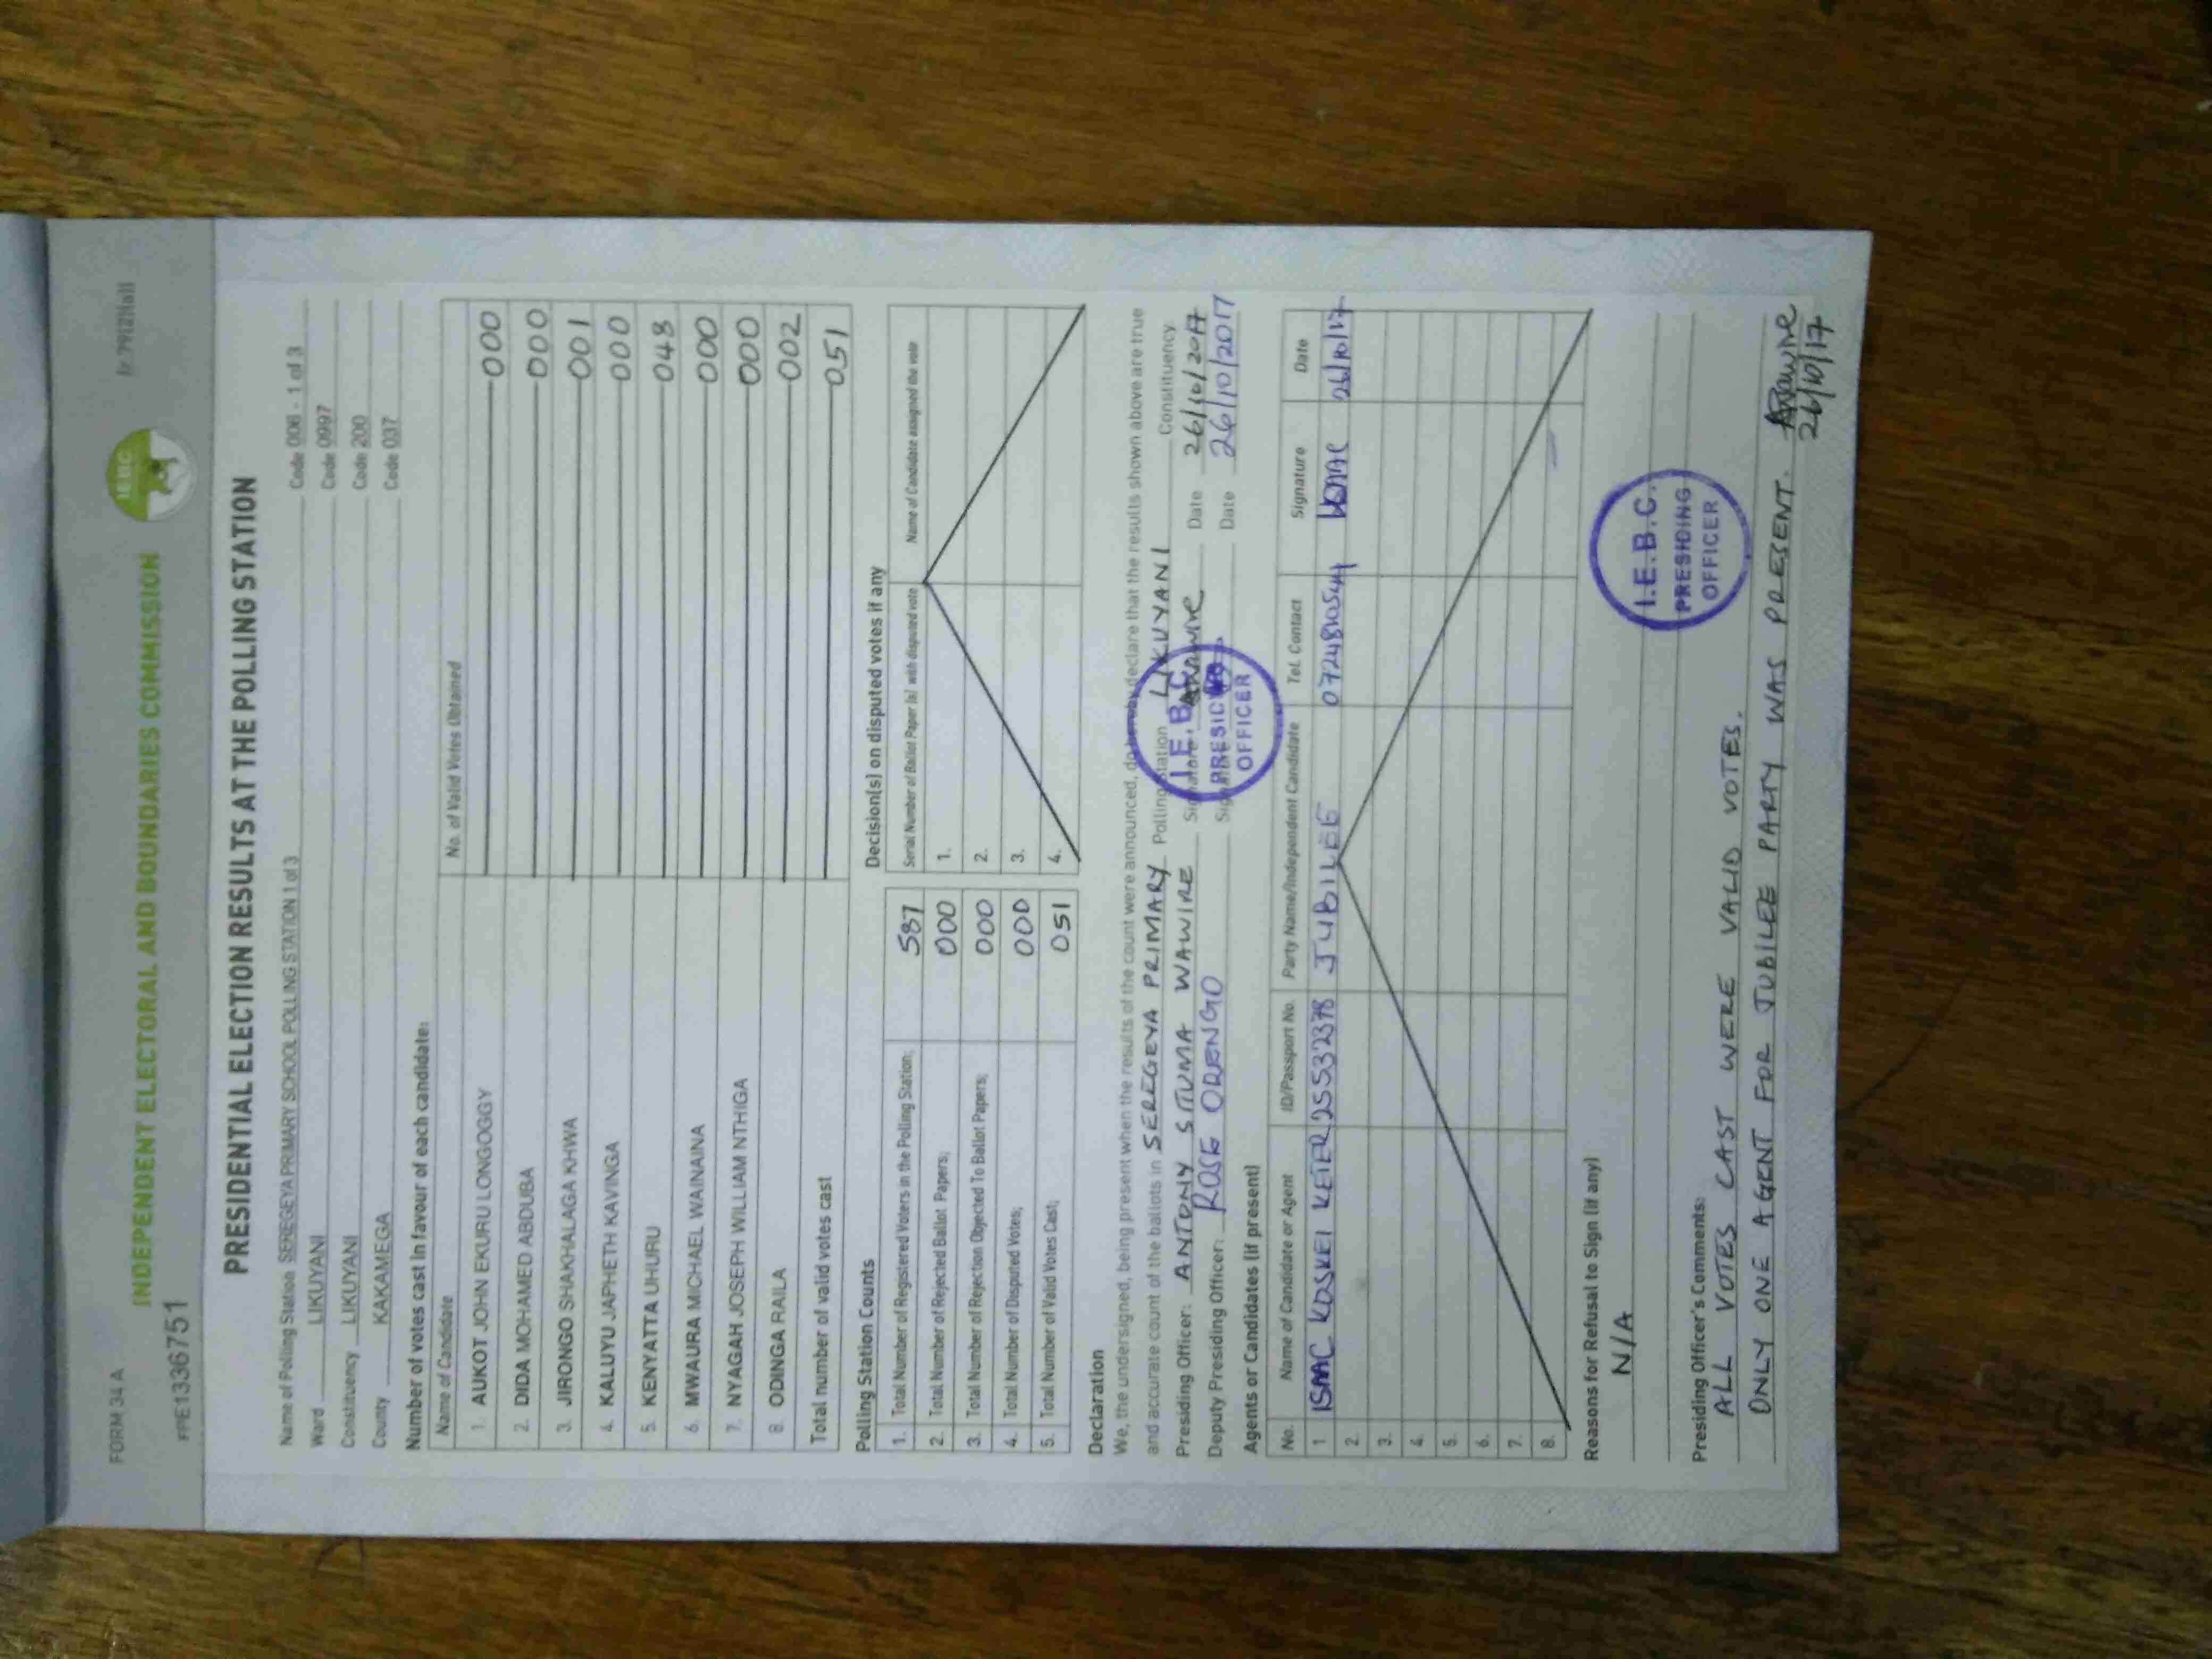 FORM 34 A
r 79(2)(a)
INDEPENDENT ELECTORAL AND BOUNDARIES COMMISSION
IEBC
PPE1336751
PRESIDENTIAL ELECTION RESULTS AT THE POLLING STATION
Name of Polling Station SEREGEYA PRIMARY SCHOOL POLLING STATION 1 of 3 Code 006 - 1 of 3
Ward LIKUYANI Code 0997
Constituency LIKUYANI Code 200
County KAKAMEGA Code 037
Number of votes cast in favour of each candidate:
Name of Candidate No. of Valid Votes Obtained
1. AUKOT JOHN EKURU LONGOGGY 000
2. DIDA MOHAMED ABDUBA 000
3. JIRONGO SHAKHALAGA KHWA 001
4. KALUYU JAPHETH KAVINGA 000
5. KENYATTA UHURU 048
6. MWAURA MICHAEL WAINAINA 000
7. NYAGAH JOSEPH WILLIAM NTHIGA 000
8. ODINGA RAILA 002
Total number of valid votes cast 051
Polling Station Counts
1. Total Number of Registered Voters in the Polling Station; 587
2. Total Number of Rejected Ballot Papers; 000
3. Total Number of Rejection Objected To Ballot Papers; 000
4. Total Number of Disputed Votes; 000
5. Total Number of Valid Votes Cast; 051
Decision(s) on disputed votes if any
Serial Number of Ballot Paper (s) with disputed vote Name of Candidate assigned the vote
1.
2.
3.
4.
Declaration
We, the undersigned, being present when the results of the count were announced, do hereby declare that the results shown above are true
and accurate count of the ballots in SEREGEYA PRIMARY Polling Station LIKUYANI Constituency.
Presiding Officer: ANTONY SITUMA WAWIRE Signature: Date 26/10/2017
Deputy Presiding Officer: ROSE ODENGO Signature Date 26/10/2017
I.E.B.C.
PRESIDING
OFFICER
Agents or Candidates (if present)
No. Name of Candidate or Agent ID/Passport No. Party Name/Independent Candidate Tel. Contact Signature Date
1 ISAAC KOSKEI 25532378 JUBILEE Isaac 26/10/17
2.
3.
4.
5.
6.
7.
8.
Reasons for Refusal to Sign (if any)
N/A
I.E.B.C.
PRESIDING
OFFICER
Presiding Officer's Comments:
ALL VOTES CAST WERE VALID VOTES.
ONLY ONE AGENT FOR JUBILEE PARTY WAS PRESENT.
26/10/17